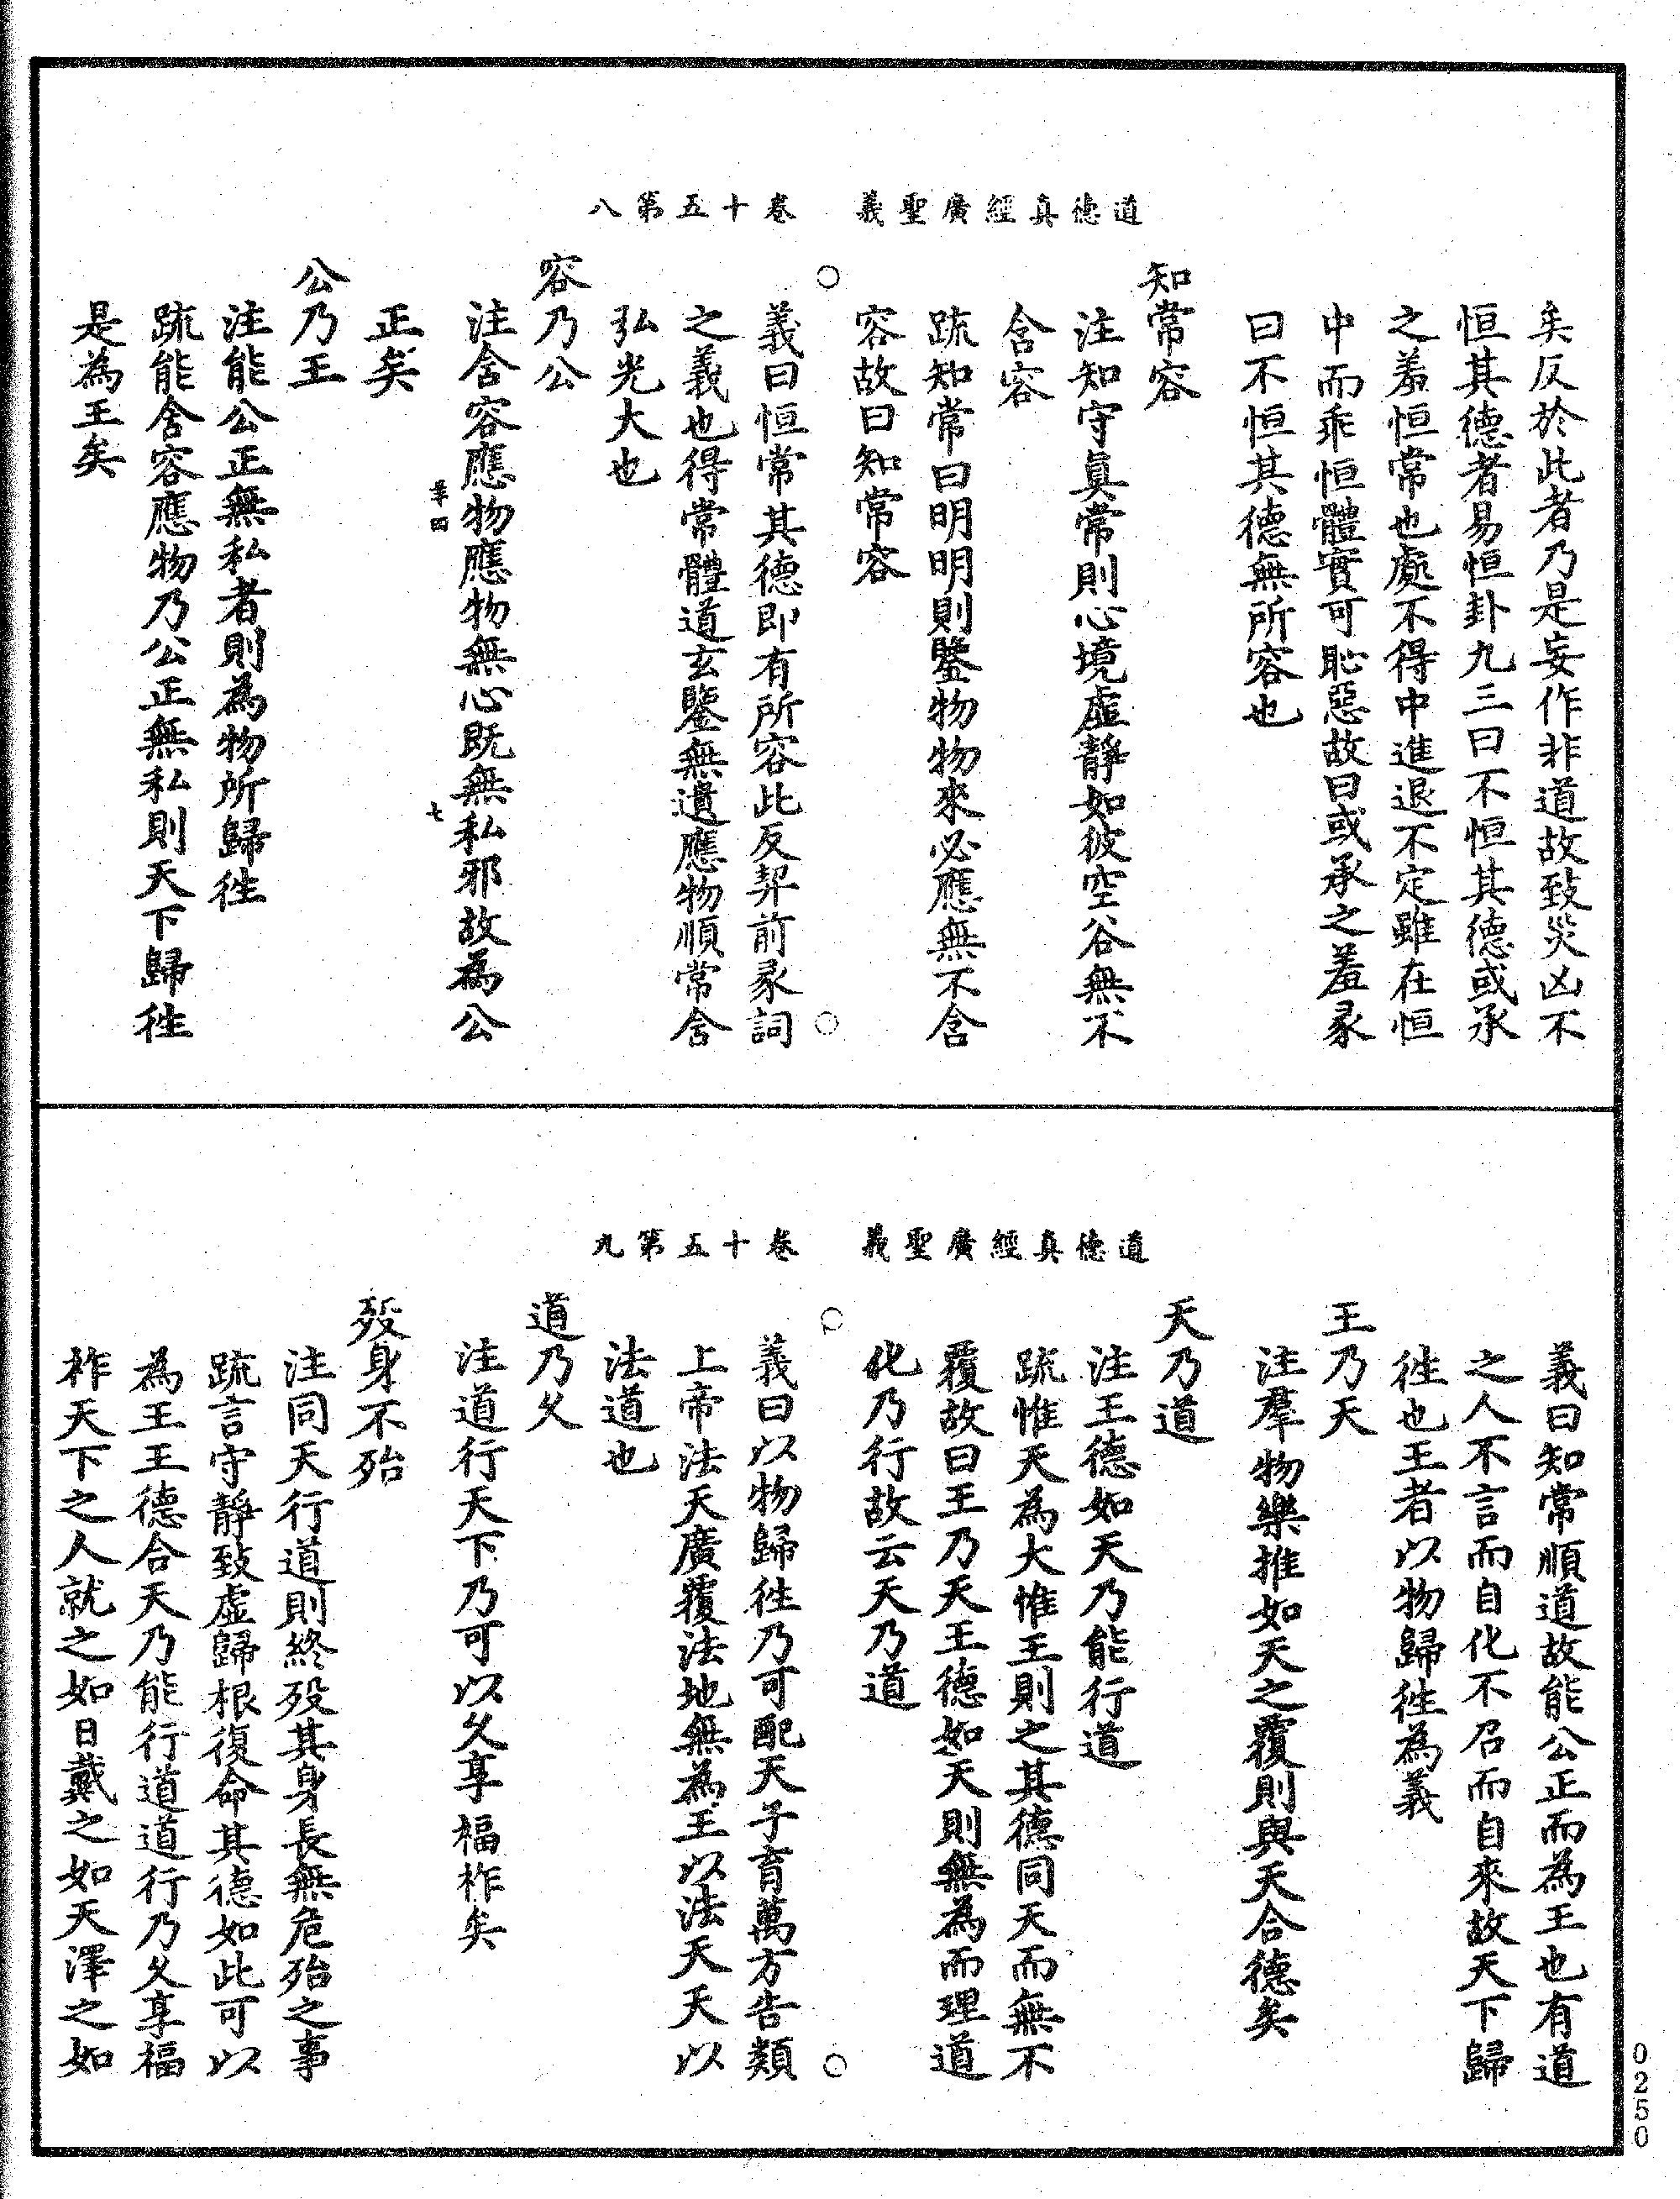 道德真經廣聖義　卷十五第八
矣反於此者乃是妄作非道故致災凶不
恒其德者易恒卦九三曰不恒其德或承
之羞恒常也處不得中進退不定雖在恒
中而乖恒體實可恥惡故曰或承之羞彖
曰不恒其德無所容也
知常容
注知守眞常則心境虛靜如彼空谷無不
含容
疏知常曰明明則鑒物物來必應無不含
容故曰知常容
義曰恒常其德即有所容此反契前彖詞
之義也得常體道玄鑒無遺應物順常含
弘光大也
容乃公
注含容應物應物無心既無私邪故為公
正矣
公乃王
注能公正無私者則為物所歸徃
疏能含容應物乃公正無私則天下歸徃
是為王矣
道德真經廣聖義　卷十五第九
義曰知常順道故能公正而為王也有道
之人不言而自化不召而自來故天下歸
徃也王者以物歸徃為義
王乃天
注羣物樂推如天之覆則與天合德矣
天乃道
注王德如天乃能行道
疏惟天為大惟王則之其德同天而無不
覆故曰王乃天王德如天則無為而理道
化乃行故云天乃道
義曰以物歸徃乃可配天子育萬方告類
上帝法天廣覆法地無為王以法天天以
法道也
道乃久
注道行天下乃可以久享福祚矣
歿身不殆
注同天行道則終歿其身長無危殆之事
疏言守靜致虛歸根復命其德如此可以
為王王德合天乃能行道道行乃久享福
祚天下之人就之如日戴之如天澤之如
0250